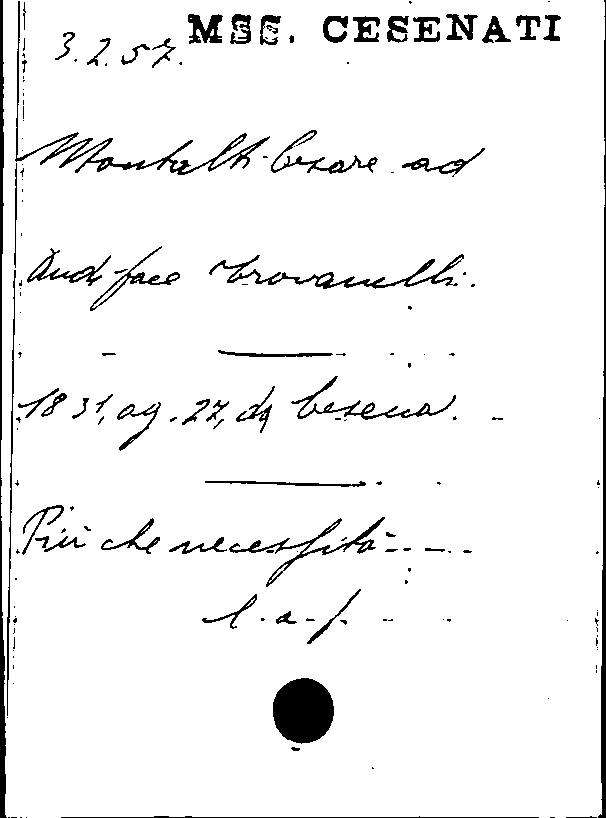 MSS. CESENATI
3.2.57.
Montalti Cesare ad
face Trovanelli.
1831, ag. 27, da Cesena.
Più che necessità - - - -
l. a. f.